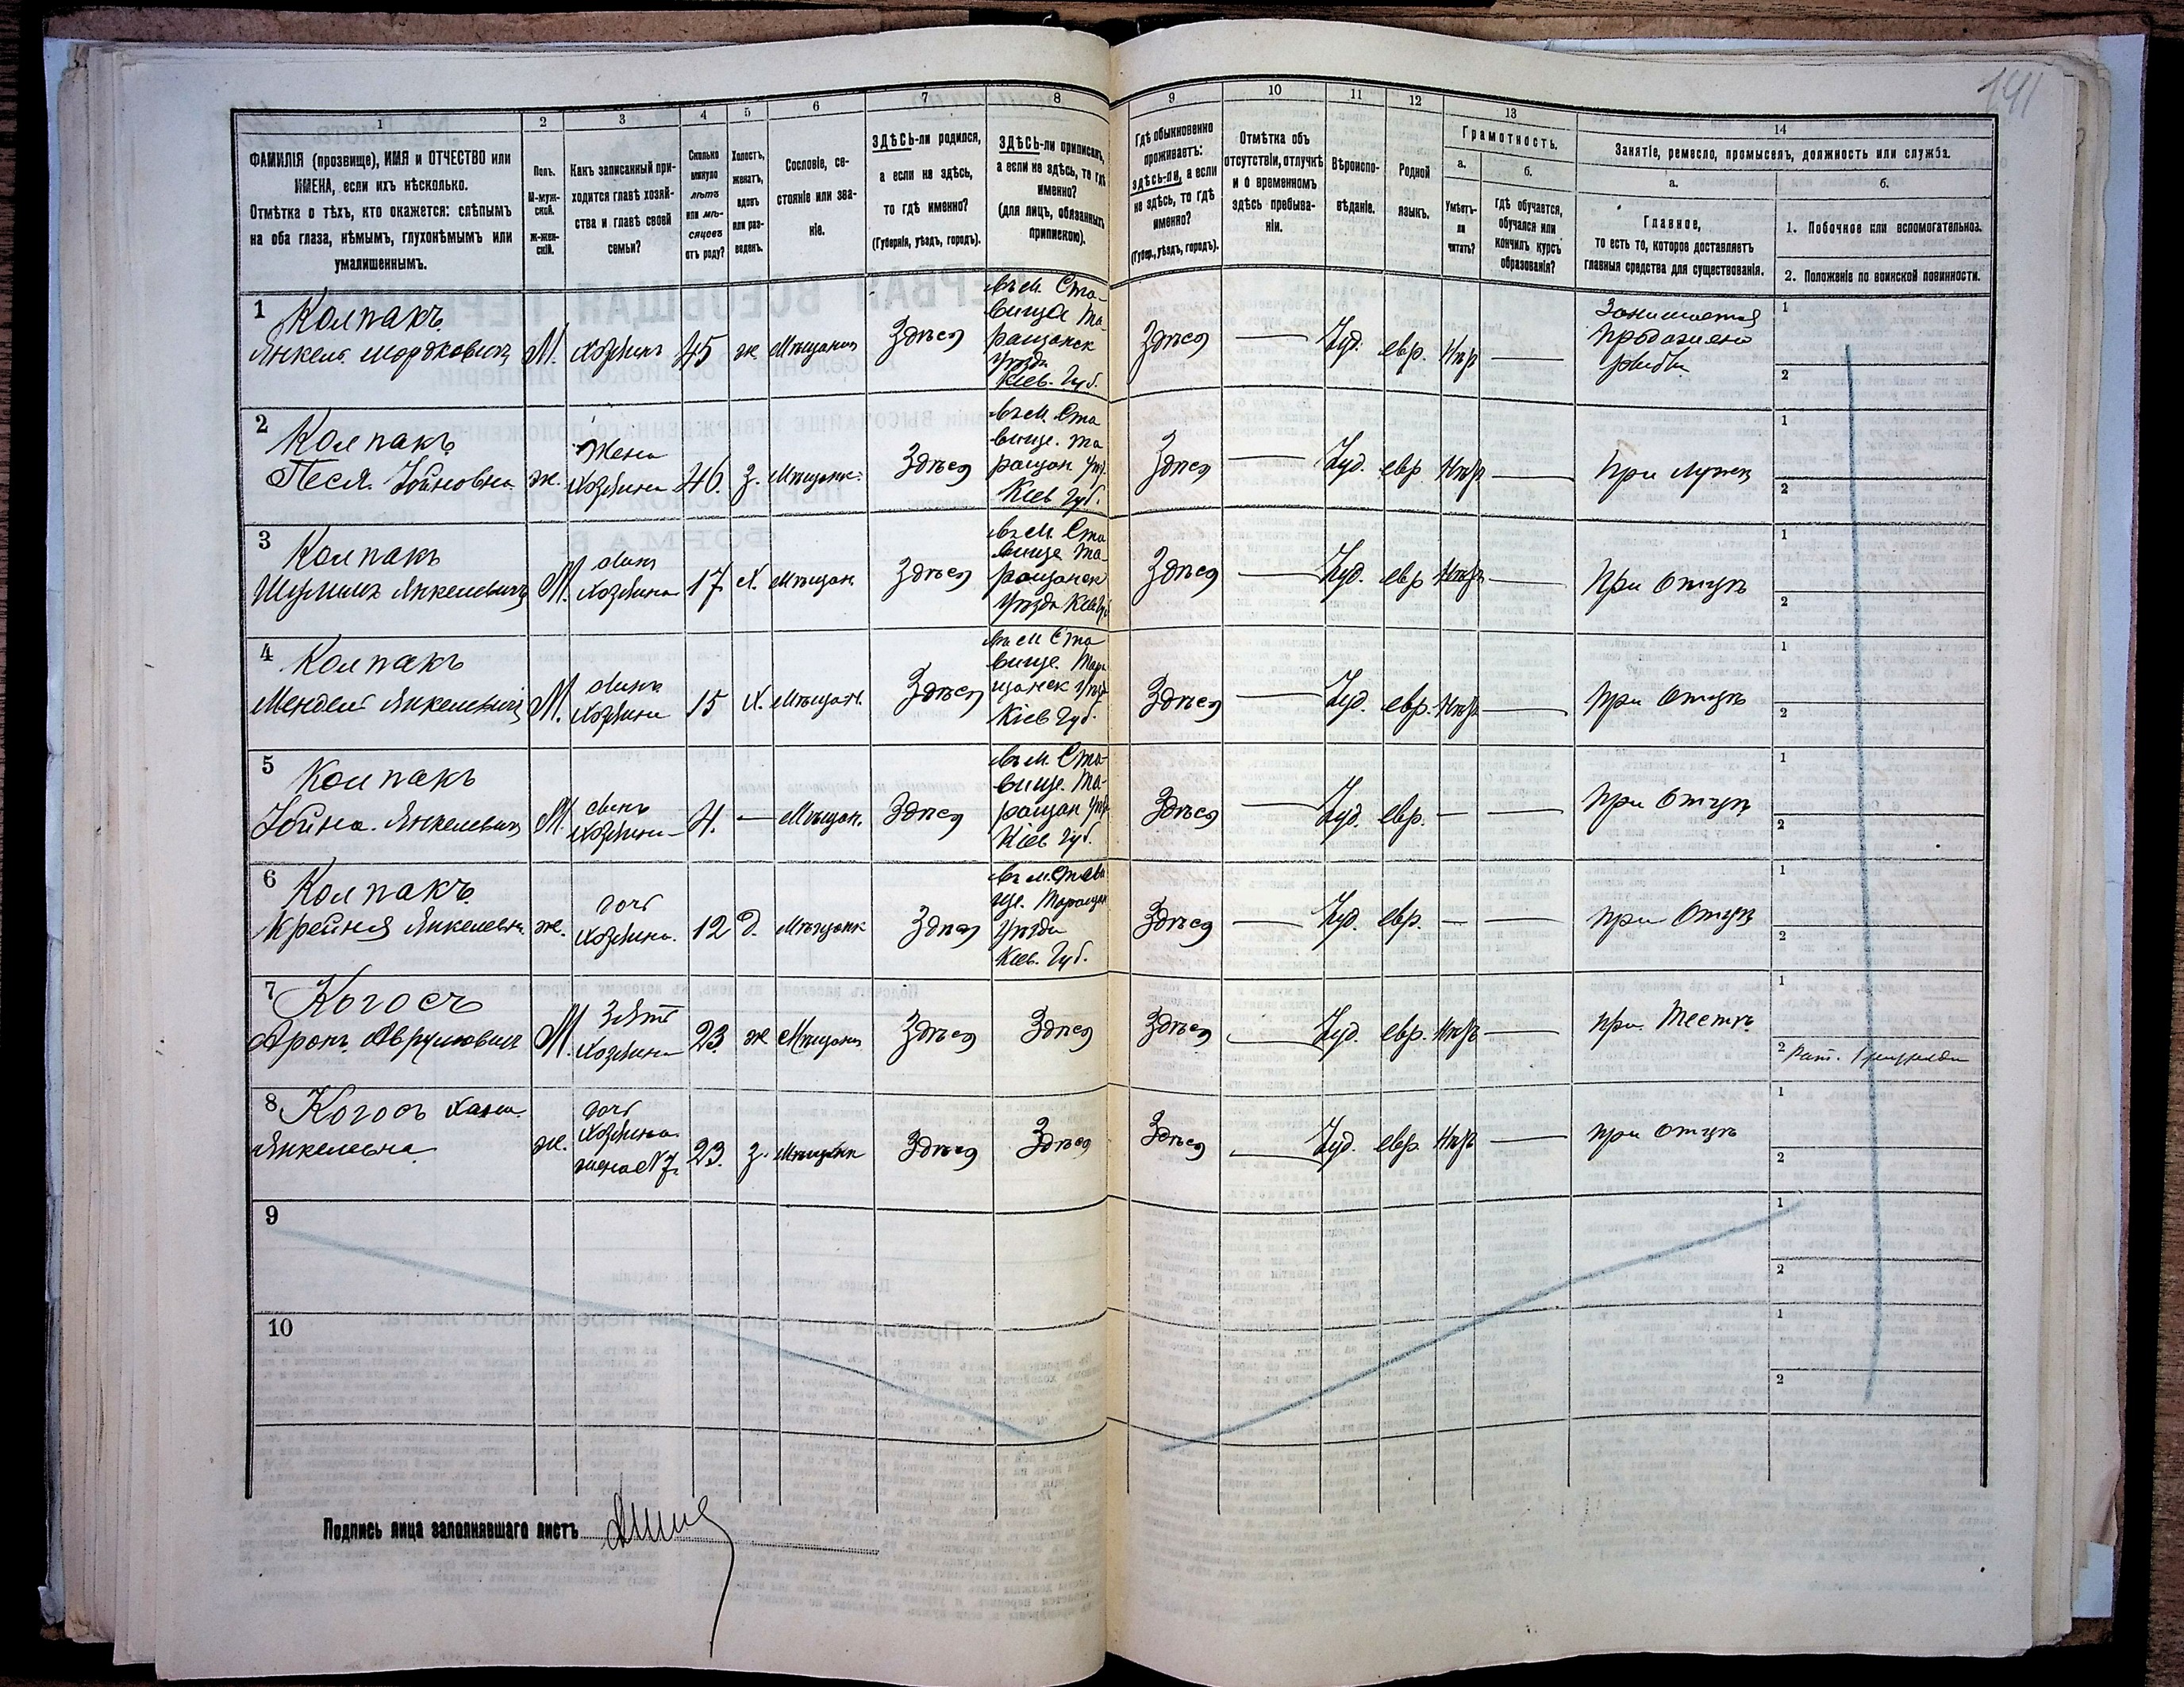 141
1
ФАМИЛІЯ (прозвище), ИМЯ и ОТЧЕСТВО или
ИМЕНА, если ихъ нѣсколько.
Отмѣтка о тѣхъ, кто окажется: слѣпымъ
на оба глаза, нѣмымъ, глухонѣмымъ или
умалишеннымъ.
2
Полъ.
М-муж-
ской.
Ж-жен-
скій.
3
Какъ записанный при-
ходится главѣ хозяй-
ства и главѣ своей
семьи?
4
Сколько
минуло
лѣтъ
или мѣ-
сяцевъ
отъ роду?
5
Холостъ,
женатъ,
вдовъ
или раз-
веденъ.
6
Сословіе, со-
стояніе или зва-
ніе.
7
ЗДѢСЬ-ли родился,
а если не здѣсь,
то гдѣ именно?
(Губернія, уѣздъ, городъ).
8
ЗДѢСЬ-ли приписанъ,
а если не здѣсь, то гдѣ
именно?
(для лицъ, обязанныхъ
припискою).
9
Гдѣ обыкновенно
проживаетъ:
здѣсь-ли, а если
не здѣсь, то гдѣ
именно?
(Губер., уѣздъ, городъ).
10
Отмѣтка объ
отсутствіи, отлучкѣ
и о временномъ
здѣсь пребыва-
ніи.
11
Вѣроиспо-
вѣданіе.
12
Родной
языкъ.
13
Грамотность.
а.
Умѣетъ-
ли
читать?
б.
гдѣ обучается,
обучался или
кончилъ курсъ
образованія?
14
Занятіе, ремесло, промыселъ, должность или служба.
а.
Главное,
то есть то, которое доставляетъ
главныя средства для существованія.
б.
1. Побочное или вспомогательное.
2. Положеніе по воинской повинности.
1 Колпакъ
Янкель Мордковичъ М. Хозяинъ 45 ж Мѣщанин Здѣсь
въ м. Ста-
вище Та-
ращанск
Уѣзда
Кіев. Губ.
Здѣсь — Іуд. евр. Нѣт —
Занимается
продажею
рыбы
1
2
2 Колпакъ
Песя Іойновна ж.
Жена
Хозяина
46. з. Мѣщанк. Здѣсь
въ м. Ста
вище. Та
ращан Уѣз.
Кіев Губ.
Здѣсь — Іуд. евр. Нѣт — При мужѣ
1
2
3 Колпакъ
Шулимъ Янкелевичъ М.
сынъ
Хозяина
17 х. Мѣщан. Здѣсь
въ м. Ста
вище Та-
ращанск
Уѣзда Кіев Губ
Здѣсь — Іуд. евр Нѣт — При Отцѣ
1
2
4 Колпакъ
Мендель Янкелевичъ М.
сынъ
Хозяина
15 Х. Мѣщан. Здѣсь
въ м Ста
вище. Тара
щанск Уѣзд
Кіев Губ.
Здѣсь — Іуд. евр. Нѣт — При Отцѣ
1
2
5 Колпакъ
Іойна Янкелевичъ М.
сынъ
Хозяина
4. — Мѣщан. Здѣсь
въ м. Ста-
вище. Та-
ращан Уѣз
Кіев Губ.
Здѣсь — Іуд. евр. — — При Отцѣ
1
2
6 Колпакъ
Крейня Янкелевн. ж.
дочь
Хозяина.
12 д. Мѣщанк Здѣсь
въ м. Стави
ще. Таращан
Уѣзда
Кіев. Губ.
Здѣсь — Іуд. евр. — — при Отцѣ
1
2
7 Когосъ
Аронъ Аврумовичъ М.
Зять
Хозяина
23 ж Мѣщанин Здѣсь Здѣсь Здѣсь — Іуд. евр. Нѣтъ — при Тестѣ
1
2 Рат.
8 Когосъ Хана
Янкелевна ж.
дочь
Хозяина
жена N 7.
23. з. Мѣщанк Здѣсь Здѣсь Здѣсь — Іуд. евр. Нѣтъ — при Отцѣ
1
2
9
1
2
10
1
2
Подпись лица заполнявшаго листъ